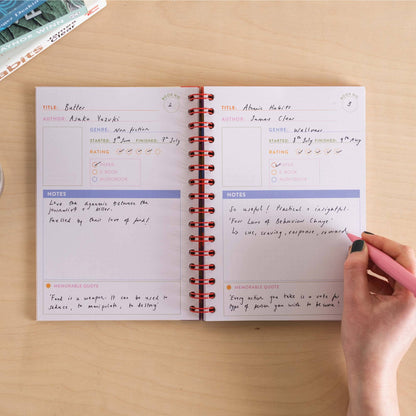 Atomic Habits
James Clear
BOOK NO.
2
TITLE: Butter
AUTHOR: Asako Yuzuki
GENRE: Non fiction
STARTED: 5th June FINISHED: 7th July
RATING
PAPER
E-BOOK
AUDIOBOOK
NOTES
Love the dynamic between the
journalist + killer.
Fuelled by their love of food!
MEMORABLE QUOTE
'Food is a weapon. It can be used to
seduce, to manipulate, to destroy'
BOOK NO.
3
TITLE: Atomic Habits
AUTHOR: James Clear
GENRE: Wellness
STARTED: 8th July FINISHED: 9th Aug
RATING
PAPER
E-BOOK
AUDIOBOOK
NOTES
So useful! Practical + insightful.
'Four Laws of Behaviour Change'
↳ cue, craving, response, reward
MEMORABLE QUOTE
'Every action you take is a vote for
type of person you wish to become'